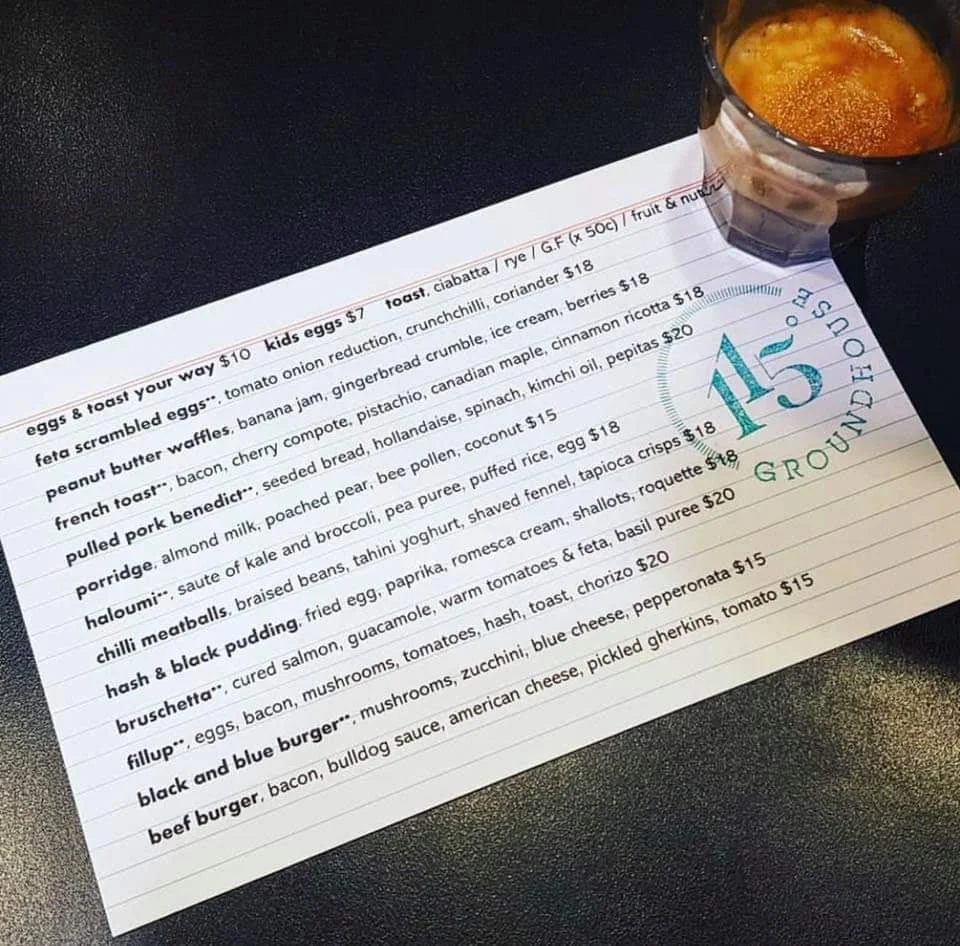 eggs & toast your way $10 kids eggs $7 toast, ciabatta / rye / G.F (x 50c) / fruit & nut
feta scrambled eggs**, tomato onion reduction, crunchchilli, coriander $18
peanut butter waffles, banana jam, gingerbread crumble, ice cream, berries $18
french toast**, bacon, cherry compote, pistachio, canadian maple, cinnamon ricotta $18
pulled pork benedict**, seeded bread, hollandaise, spinach, kimchi oil, pepitas $20
porridge, almond milk, poached pear, bee pollen, coconut $15
haloumi**, saute of kale and broccoli, pea puree, puffed rice, egg $18
chilli meatballs, braised beans, tahini yoghurt, shaved fennel, tapioca crisps $18
hash & black pudding, fried egg, paprika, romesca cream, shallots, roquette $18
bruschetta**, cured salmon, guacamole, warm tomatoes & feta, basil puree $20
fillup**, eggs, bacon, mushrooms, tomatoes, hash, toast, chorizo $20
black and blue burger**, mushrooms, zucchini, blue cheese, pepperonata $15
beef burger, bacon, bulldog sauce, american cheese, pickled gherkins, tomato $15
115°
GROUNDHOUSE